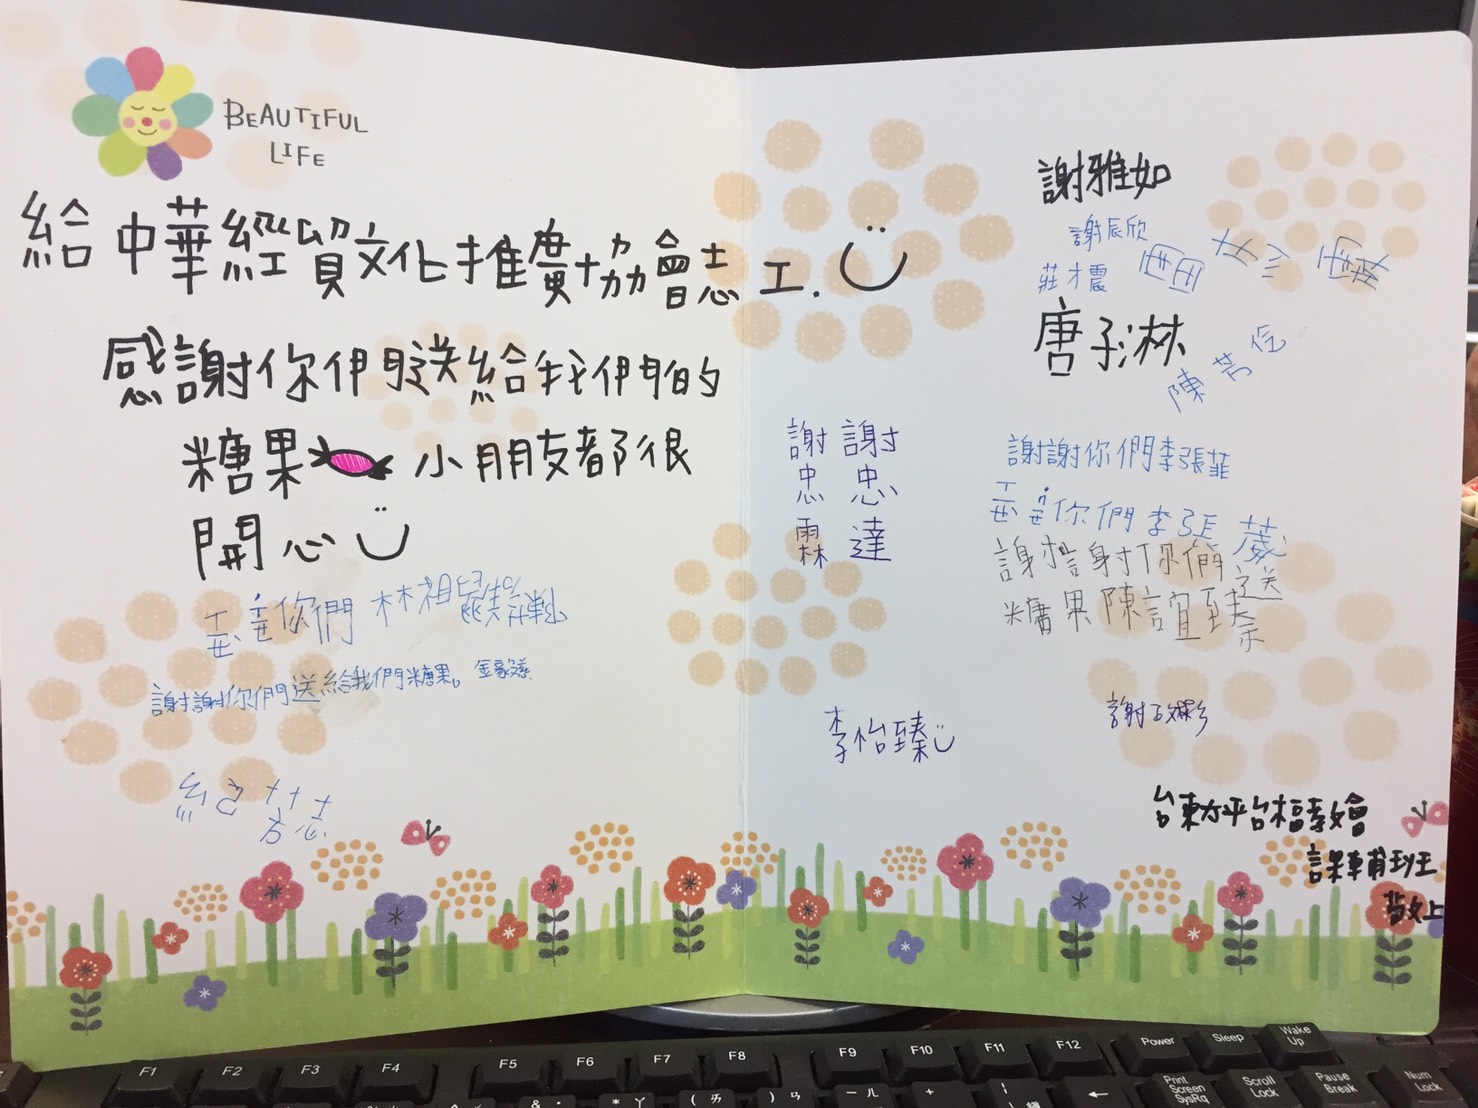 BEAUTIFUL
LIFE
給中華經貿文化推廣協會志工.
感謝你們送給我們的
糖果 小朋友都很
開心
你們林祖
謝謝你們送給我們糖果。金家
謝雅如
謝辰欣
莊才震
唐子淋
陳芳伶
謝忠達
謝忠霖
謝謝你們李張菲
你們李張葳
謝謝你們送
糖果陳誼臻
李怡臻
謝彩
台東太平台福教會
課輔班
敬上
F1 F2 F3 F4 F5 F6 F7 F8 F9 F10 F11 F12 Power Sleep Wake Up
Print Screen SysRq Scroll Lock Pause Break Num Lock